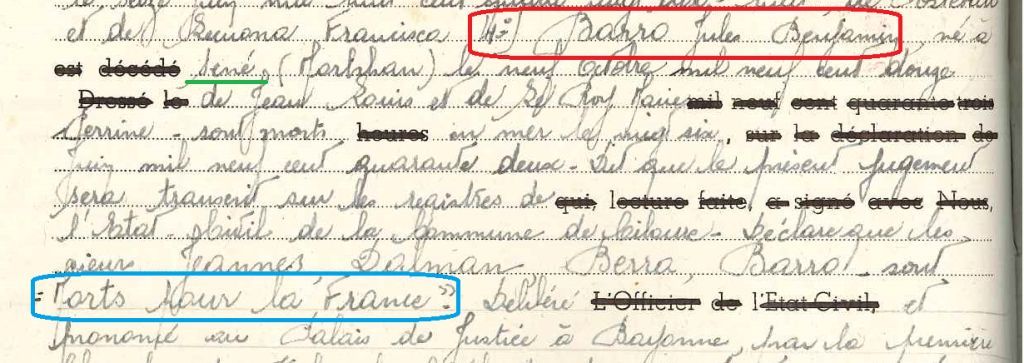 le seize juin mil neuf cent
et de Ramona Francisca 4°) Barro Jules Benjamin, né à
est décédé Séné, (Morbihan) le neuf Octobre mil neuf cent douze
Dressé le de Jean Louis et de Le Roy Marie mil neuf cent quarante trois
Perrine - sont morts heures en mer le vingt six, sur la déclaration de
Juin mil neuf cent quarante deux - Dit que le présent jugement
sera transcrit sur les registres de qui, lecture faite, a signé avec Nous,
l'Etat-Civil de la Commune de - Déclare que les
sieurs Jeannes, Dalman Berra, Barro - sont
"Morts pour la France". Délibéré L'Officier de l'Etat-Civil, et
prononcé au Palais de Justice à Bayonne, par la première